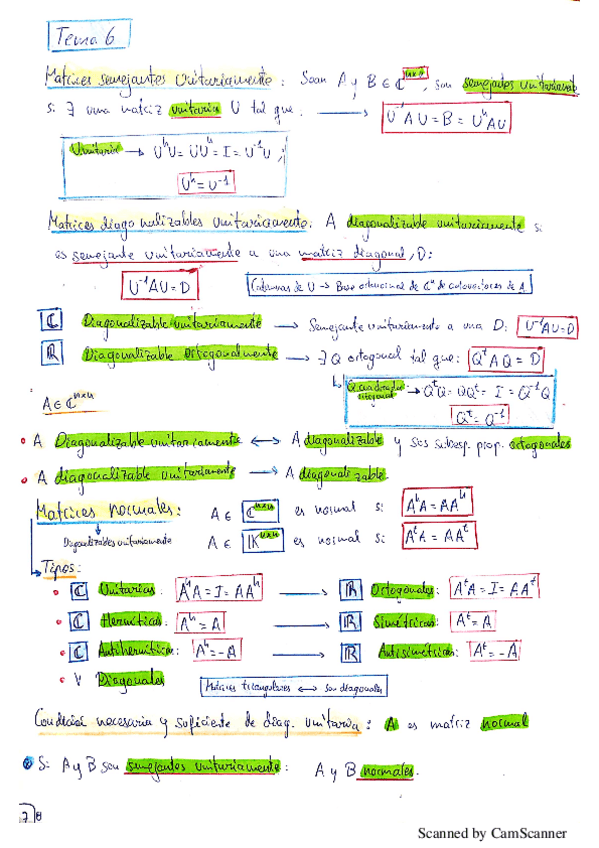 Tema 6
Matrices semejantes Unitariamente: Sean A y B ∈ ℂⁿˣⁿ, son semejantes unitariament
si ∃ una matriz unitaria U tal que: → U⁻¹AU = B = UʰAU
Unitaria → UʰU = UUʰ = I = U⁻¹U ;
Uʰ = U⁻¹
Matrices diagonalizables unitariamente: A diagonalizable unitariamente si
es semejante unitariamente a una matriz diagonal, D:
U⁻¹AU = D
Columnas de U → Base ortonormal de ℂⁿ de autovectores de A
ℂ Diagonalizable unitariamente → Semejante unitariamente a una D: U⁻¹AU = D
ℝ Diagonalizable Ortogonalmente → ∃ Q ortogonal tal que: QᵗAQ = D
Q cuadrada ortogonal → QᵗQ = QQᵗ = I = Q⁻¹Q
Qᵗ = Q⁻¹
A ∈ ℂⁿˣⁿ
• A Diagonalizable unitariamente ↔ A diagonalizable y sus subesp. prop. ortogonales
• A diagonalizable unitariamente → A diagonalizable.
Matrices normales: A ∈ ℂⁿˣⁿ es normal si: AʰA = AAʰ
Diagonalizables unitariamente A ∈ 𝕂ⁿˣⁿ es normal si: AᵗA = AAᵗ
Tipos:
• ℂ Unitarias: AʰA = I = AAʰ → ℝ Ortogonales: AᵗA = I = AAᵗ
• ℂ Hermíticas: Aʰ = A → ℝ Simétricas: Aᵗ = A
• ℂ Antihermíticas: Aʰ = -A → ℝ Antisimétricas: Aᵗ = -A
• ∀ Diagonales Matrices triangulares ↔ son diagonales
Condición necesaria y suficiente de diag. unitaria: A es matriz normal
Si A y B son semejantes unitariamente: A y B normales.
Scanned by CamScanner